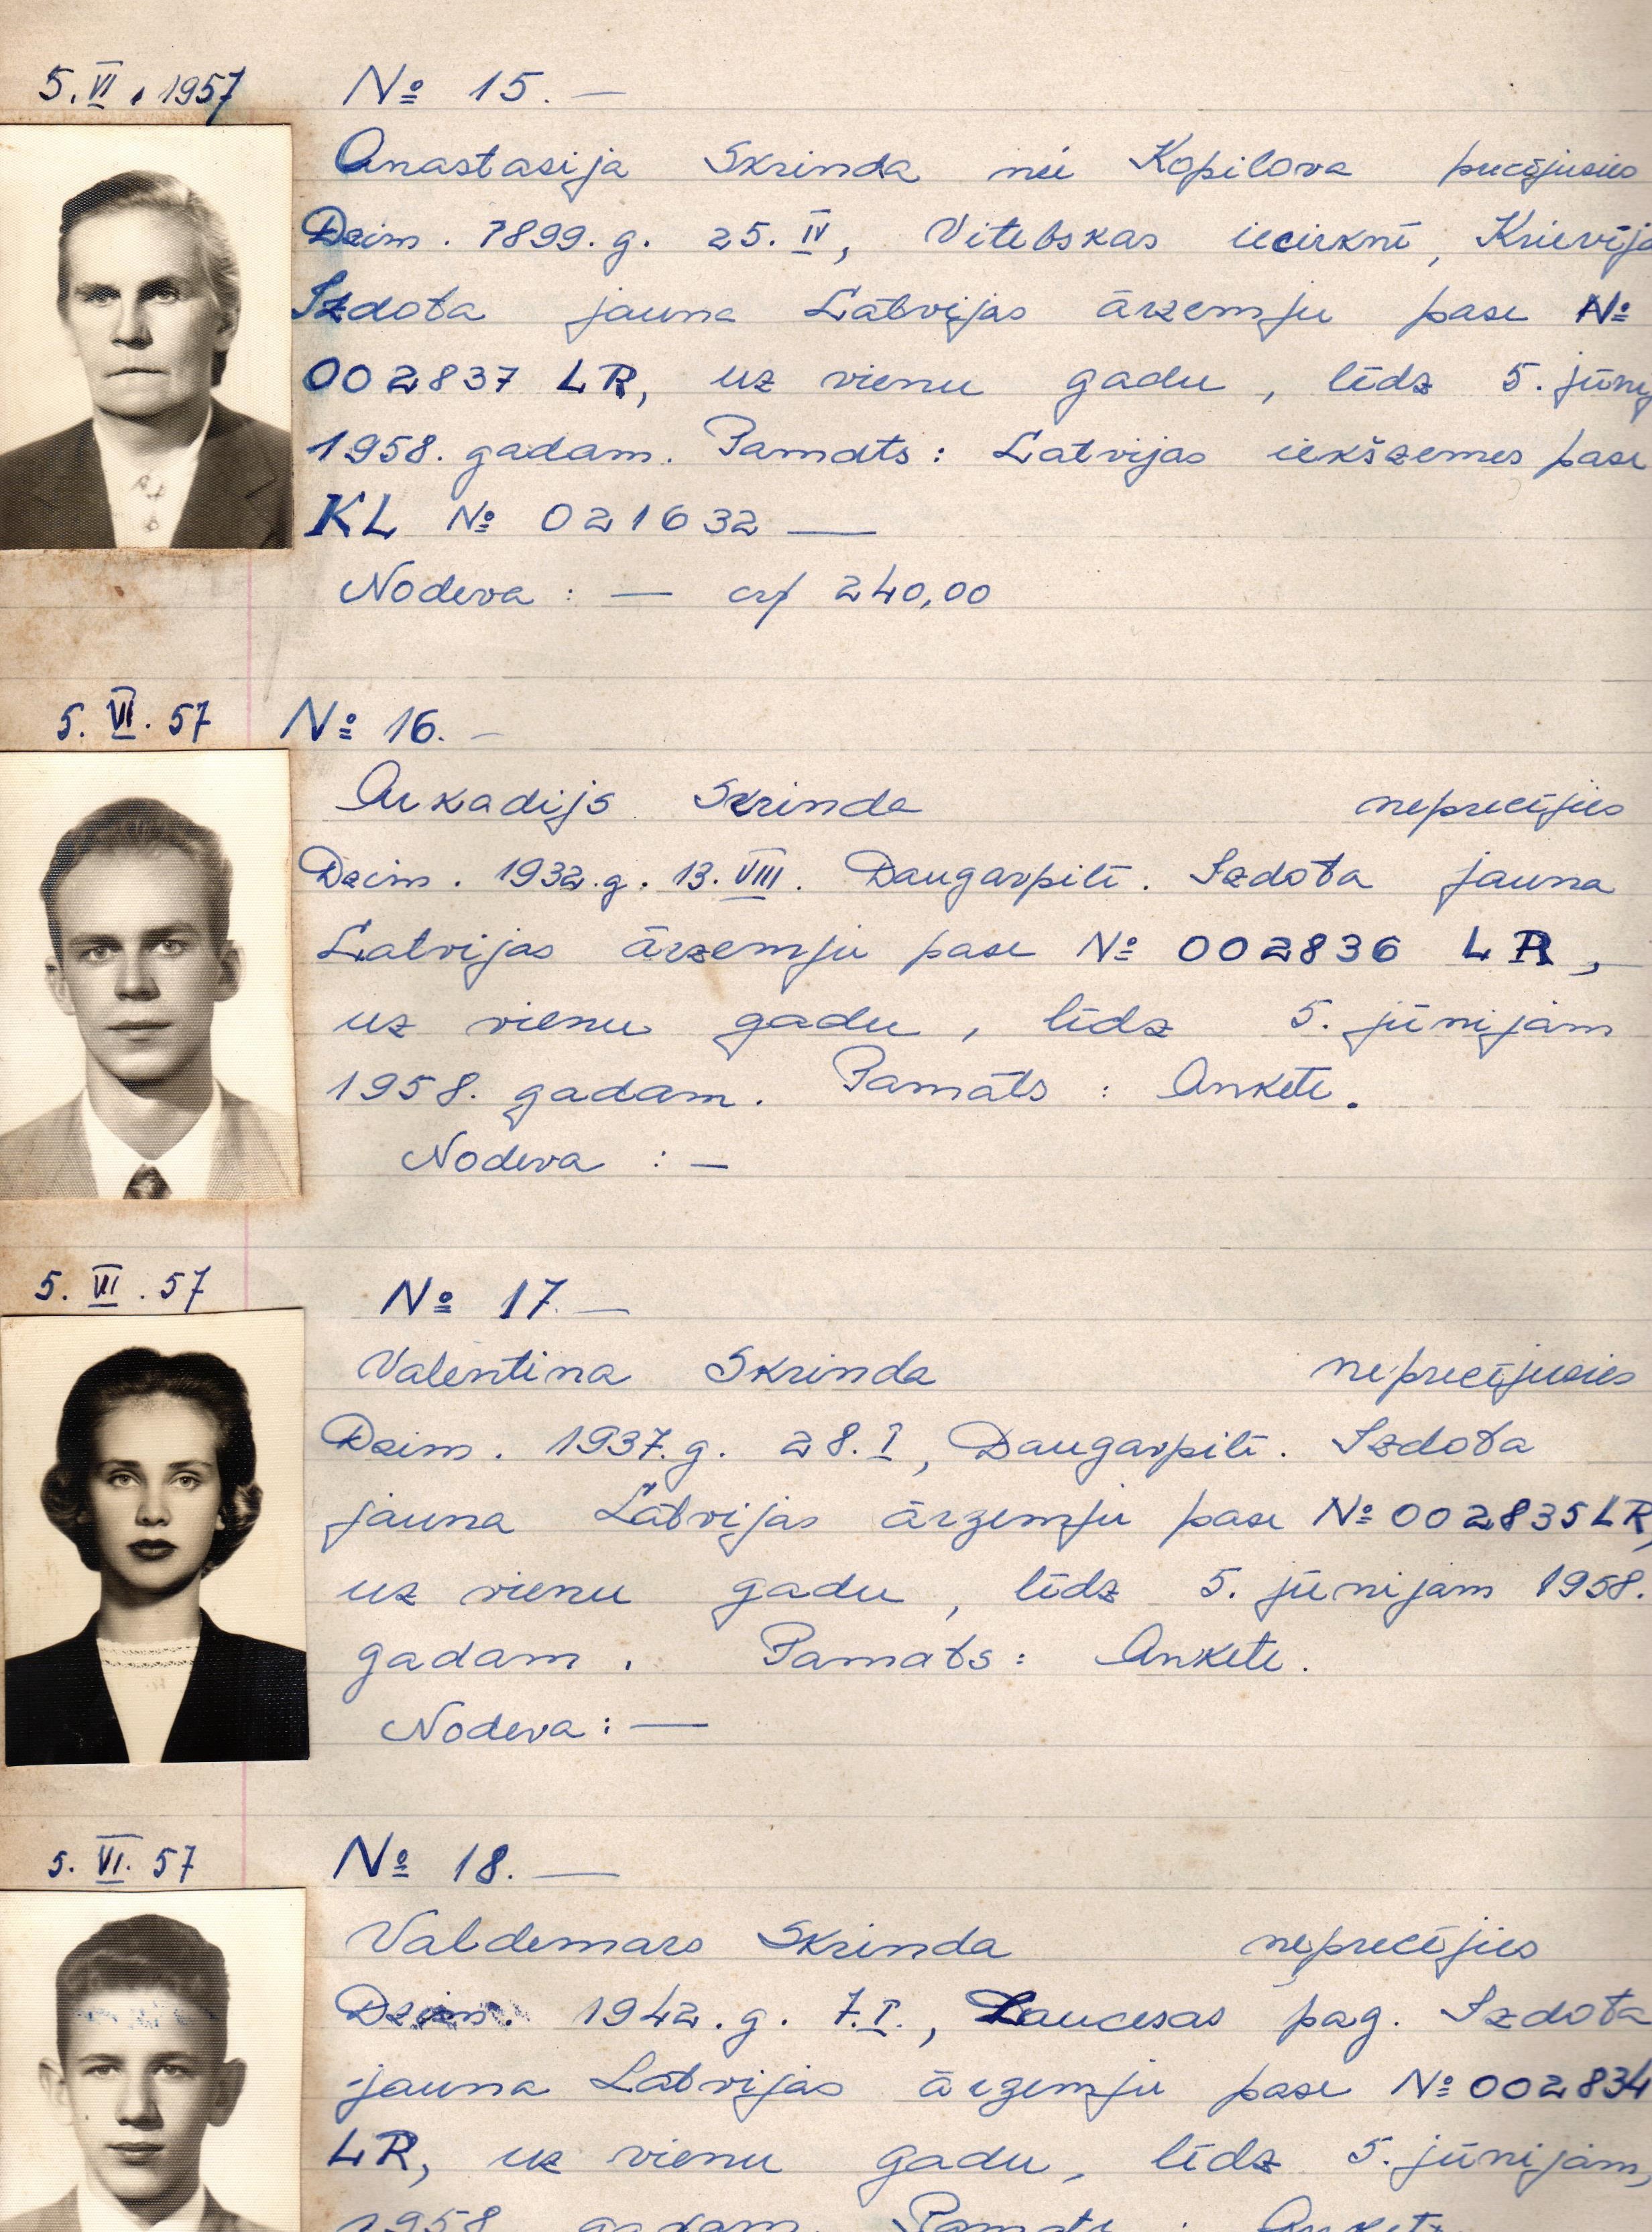 5.VI.1957 № 15. —
Anastasija Skrinda née Kopilova precējusies
Dzim. 1899.g. 25.IV, Vitebskas iecirknī, Krievijā
Izdota jauna Latvijas ārzemju pase №
002837 LR, uz vienu gadu, līdz 5. jūnij
1958. gadam. Pamats: Latvijas iekšzemes pase
KL № 021632 —
Nodeva: — cr/ 240,00
5.VI.57 № 16. —
Arkadijs Skrinda neprecējies
Dzim. 1932.g. 13.VIII. Daugavpilī. Izdota jauna
Latvijas ārzemju pase № 002836 LR,
uz vienu gadu, līdz 5. jūnijam
1958. gadam. Pamats: Ankete.
Nodeva: —
5.VI.57 № 17. —
Valentina Skrinda neprecējusies
Dzim. 1937.g. 28.I, Daugavpilī. Izdota
jauna Latvijas ārzemju pase № 002835 LR,
uz vienu gadu, līdz 5. jūnijam 1958.
gadam. Pamats: Ankete.
Nodeva: —
5.VI.57 № 18. —
Valdemars Skrinda neprecējies
Dzim. 1942.g. 7.I., Laucesas pag. Izdota
jauna Latvijas ārzemju pase № 002834
LR, uz vienu gadu, līdz 5. jūnijam,
1958. gadam. Pamats: Ankete